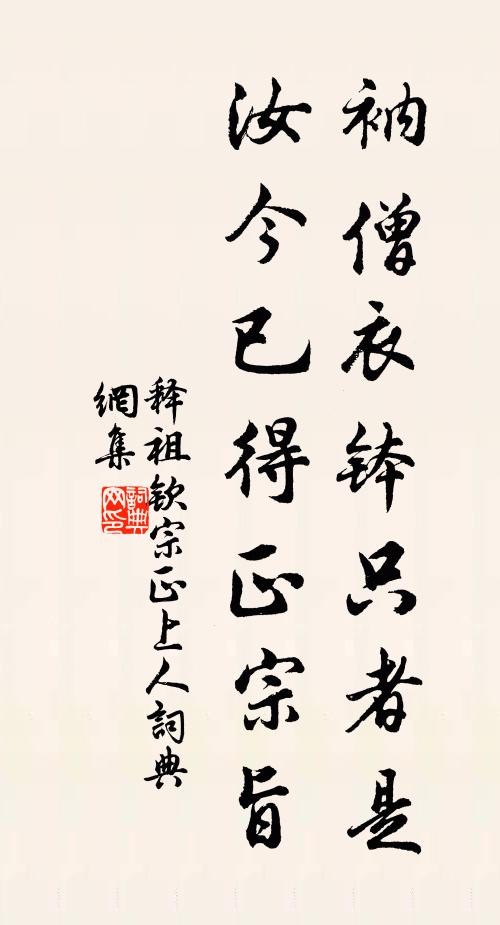 衲僧衣钵只者是
汝今已得正宗旨
释祖钦宗正上人詞典
網集
詞典网印